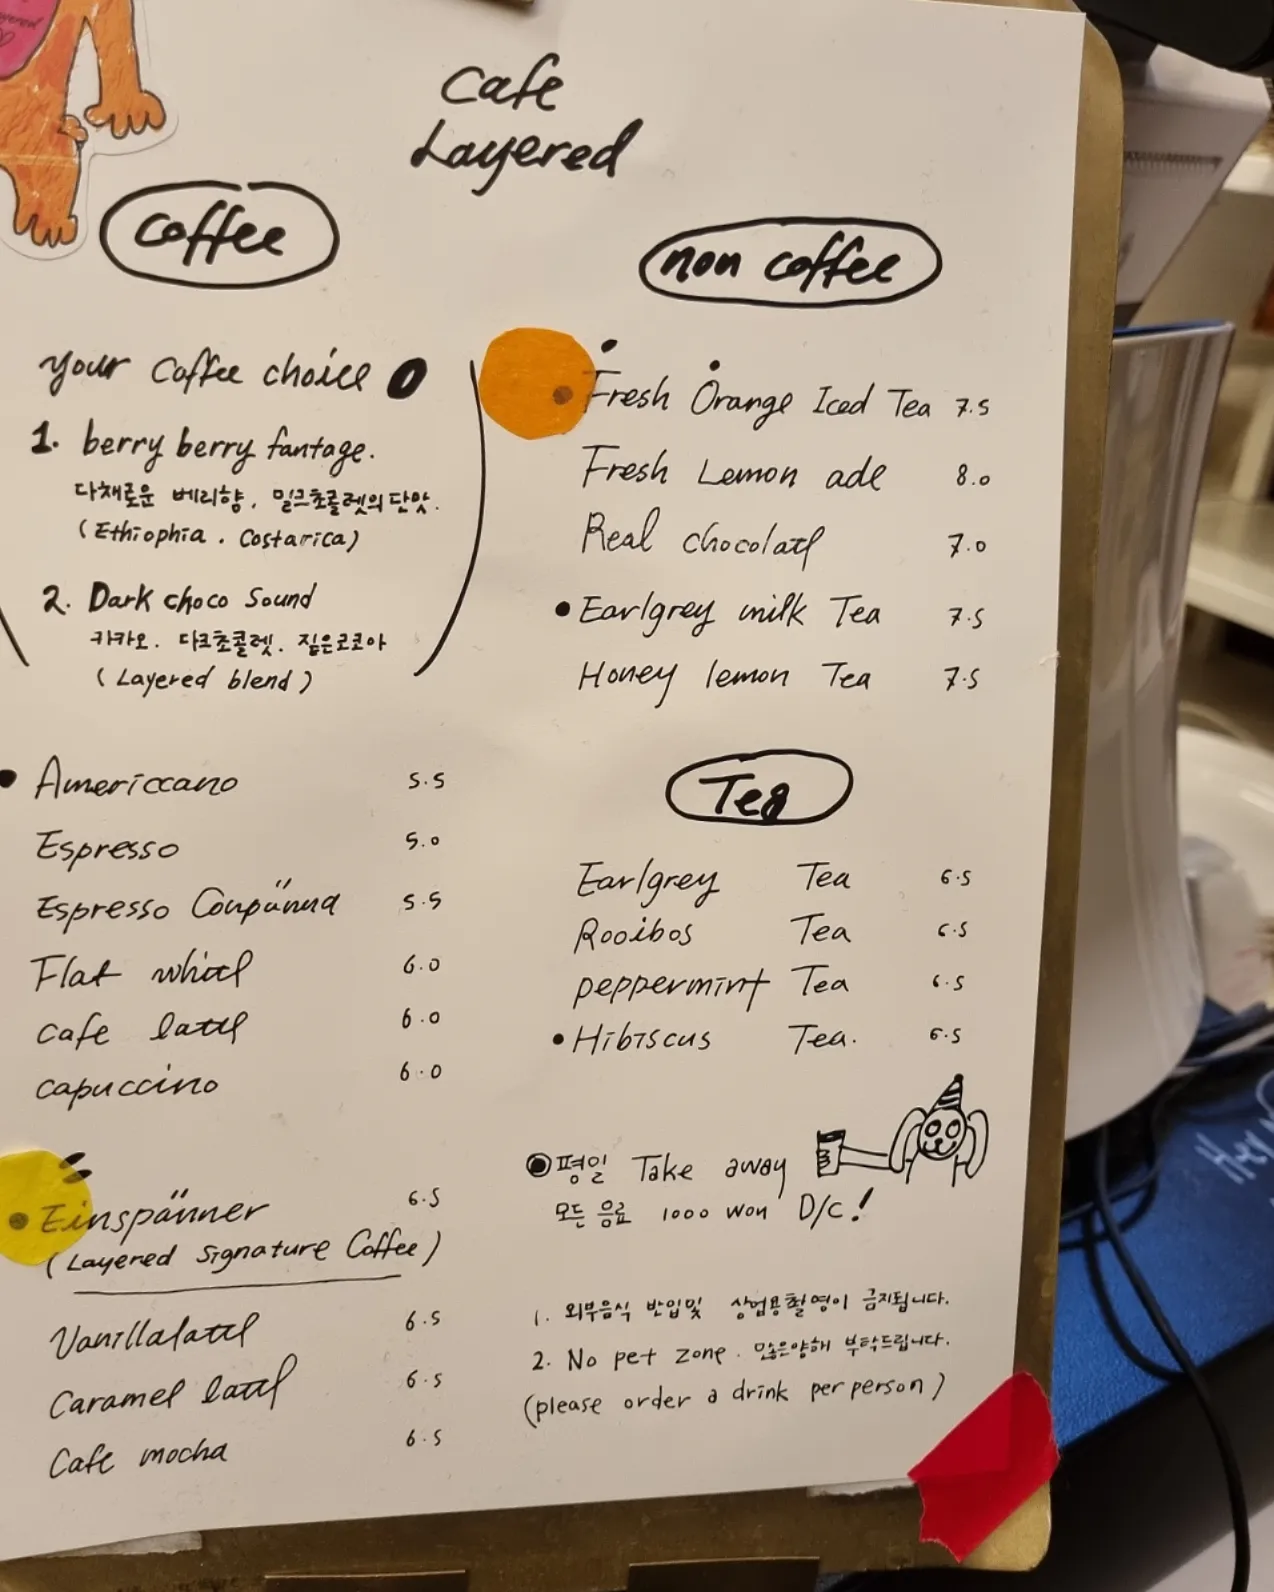 Layered
Cafe
Layered
Coffee
your coffee choice
1. berry berry fantage.
다채로운 베리향. 밀크초콜렛의 단맛.
(Ethiophia. Costarica)
2. Dark choco Sound
카카오. 다크초콜렛. 짙은코코아
(Layered blend)
Americcano 5.5
Espresso 5.0
Espresso Conpänna 5.5
Flat white 6.0
cafe latte 6.0
capuccino 6.0
Einspänner 6.5
(Layered Signature Coffee)
Vanillalatte 6.5
Caramel latte 6.5
Cafe mocha 6.5
non coffee
Fresh Orange Iced Tea 7.5
Fresh Lemon ade 8.0
Real chocolate 7.0
Earlgrey milk Tea 7.5
Honey lemon Tea 7.5
Tea
Earlgrey Tea 6.5
Rooibos Tea 6.5
peppermint Tea 6.5
Hibiscus Tea. 6.5
평일 Take away
모든 음료 1000 won D/C!
1. 외부음식 반입및 상업용촬영이 금지됩니다.
2. No pet zone. 많은양해 부탁드립니다.
(please order a drink per person)